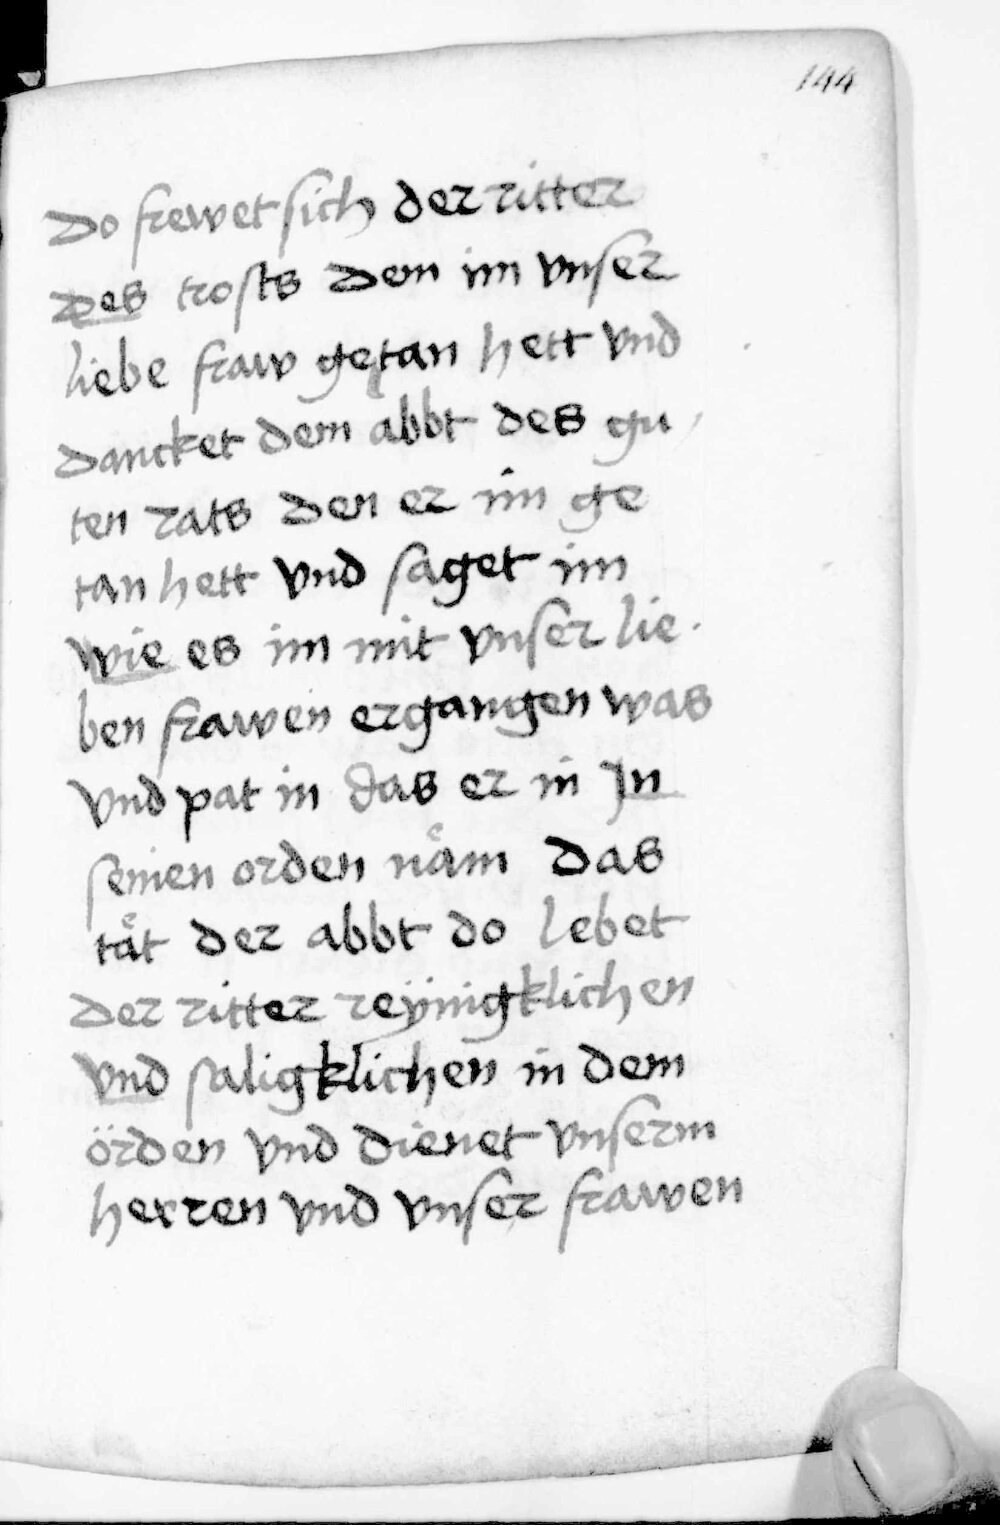 144
Do frewet sich der ritter
des trosts dem im vnser
liebe fraw getan hett vnd
dancket dem abbt des gu
ten rats den er im ge
tan hett vnd saget im
wie es im mit vnser lie
ben frawen ergangen was
vnd pat in das er in Jn
seinen orden nåm das
tåt der abbt do lebet
der ritter reÿnigklichen
vnd saligklichen in dem
örden vnd dienet vnserm
herren vnd vnser frawen